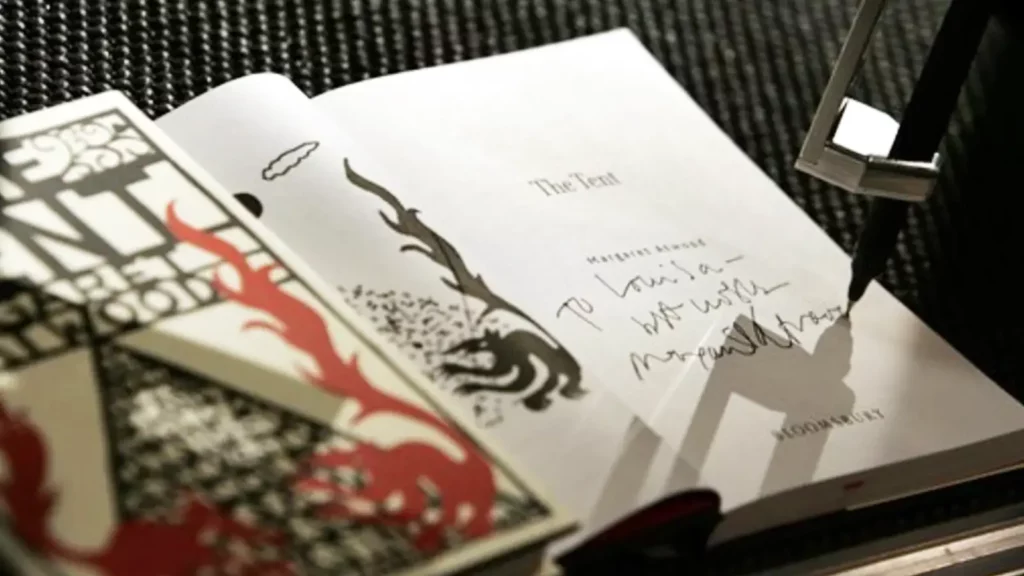 NT
The Tent
Margaret Atwood
To Louisa—
best wishes
Margaret Atwood
BLOOMSBURY